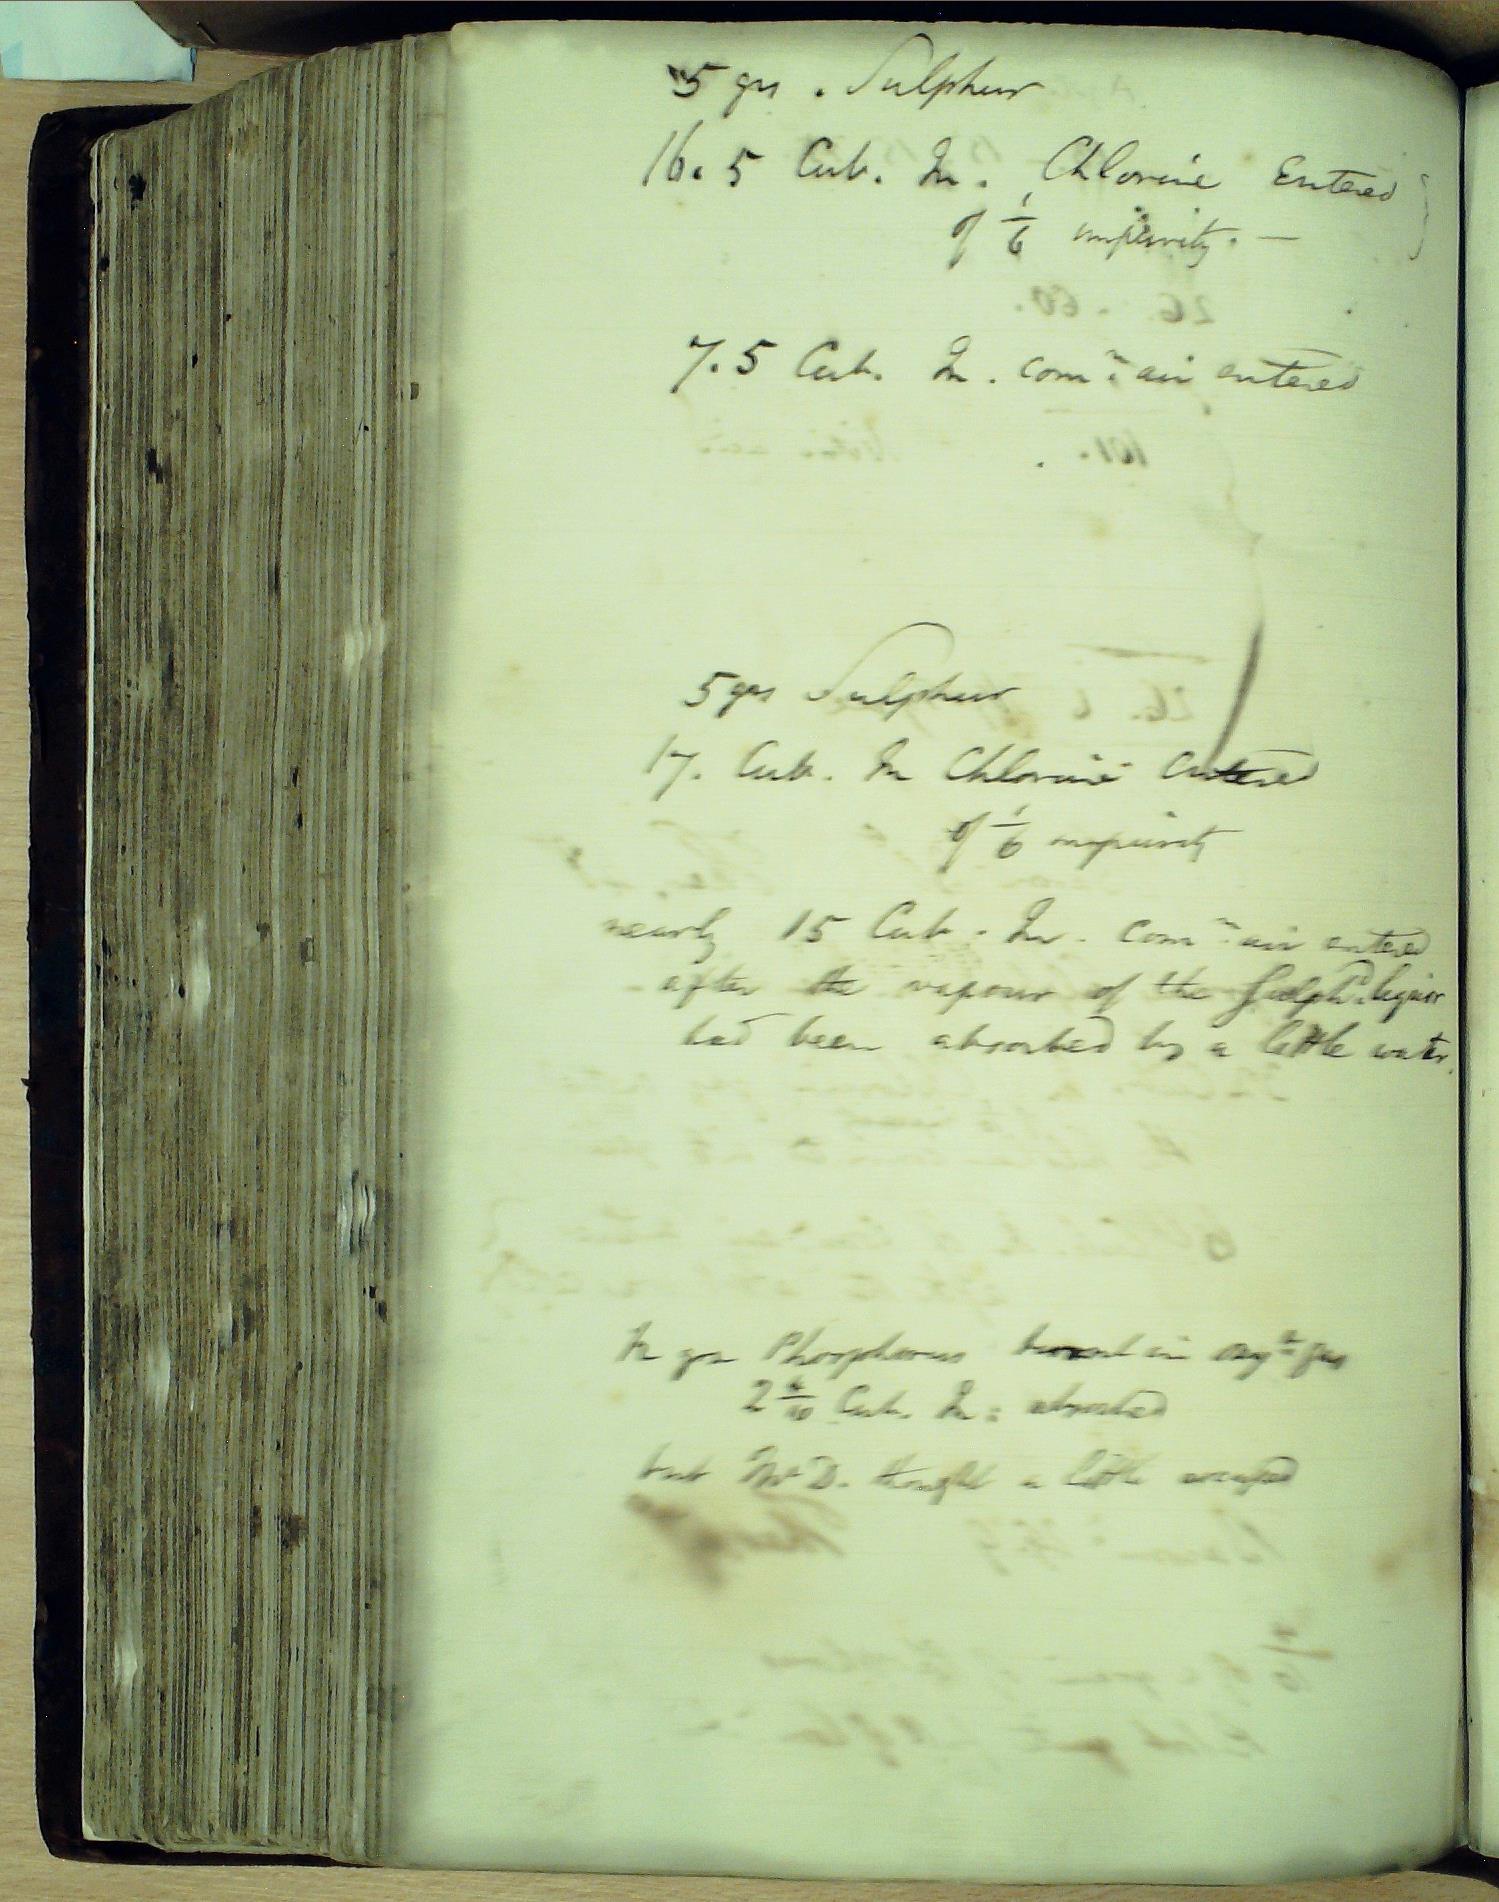 5 grs . Sulphur
16.5 Cub. In. Chlorine Entered
of 1/6 impurity. —
7.5 Cub. In. comn. air entered
5 grs Sulphur
17. Cub. In Chlorine Entered
of 1/6 impurity
nearly 15 Cub. In. comn. air entered
after the vapour of the Sulphc. liquor
had been absorbed by a little water.
gr Phosphorus burnt in gas
2 Cub. In: absorbed
but Mr D. thought a little escaped